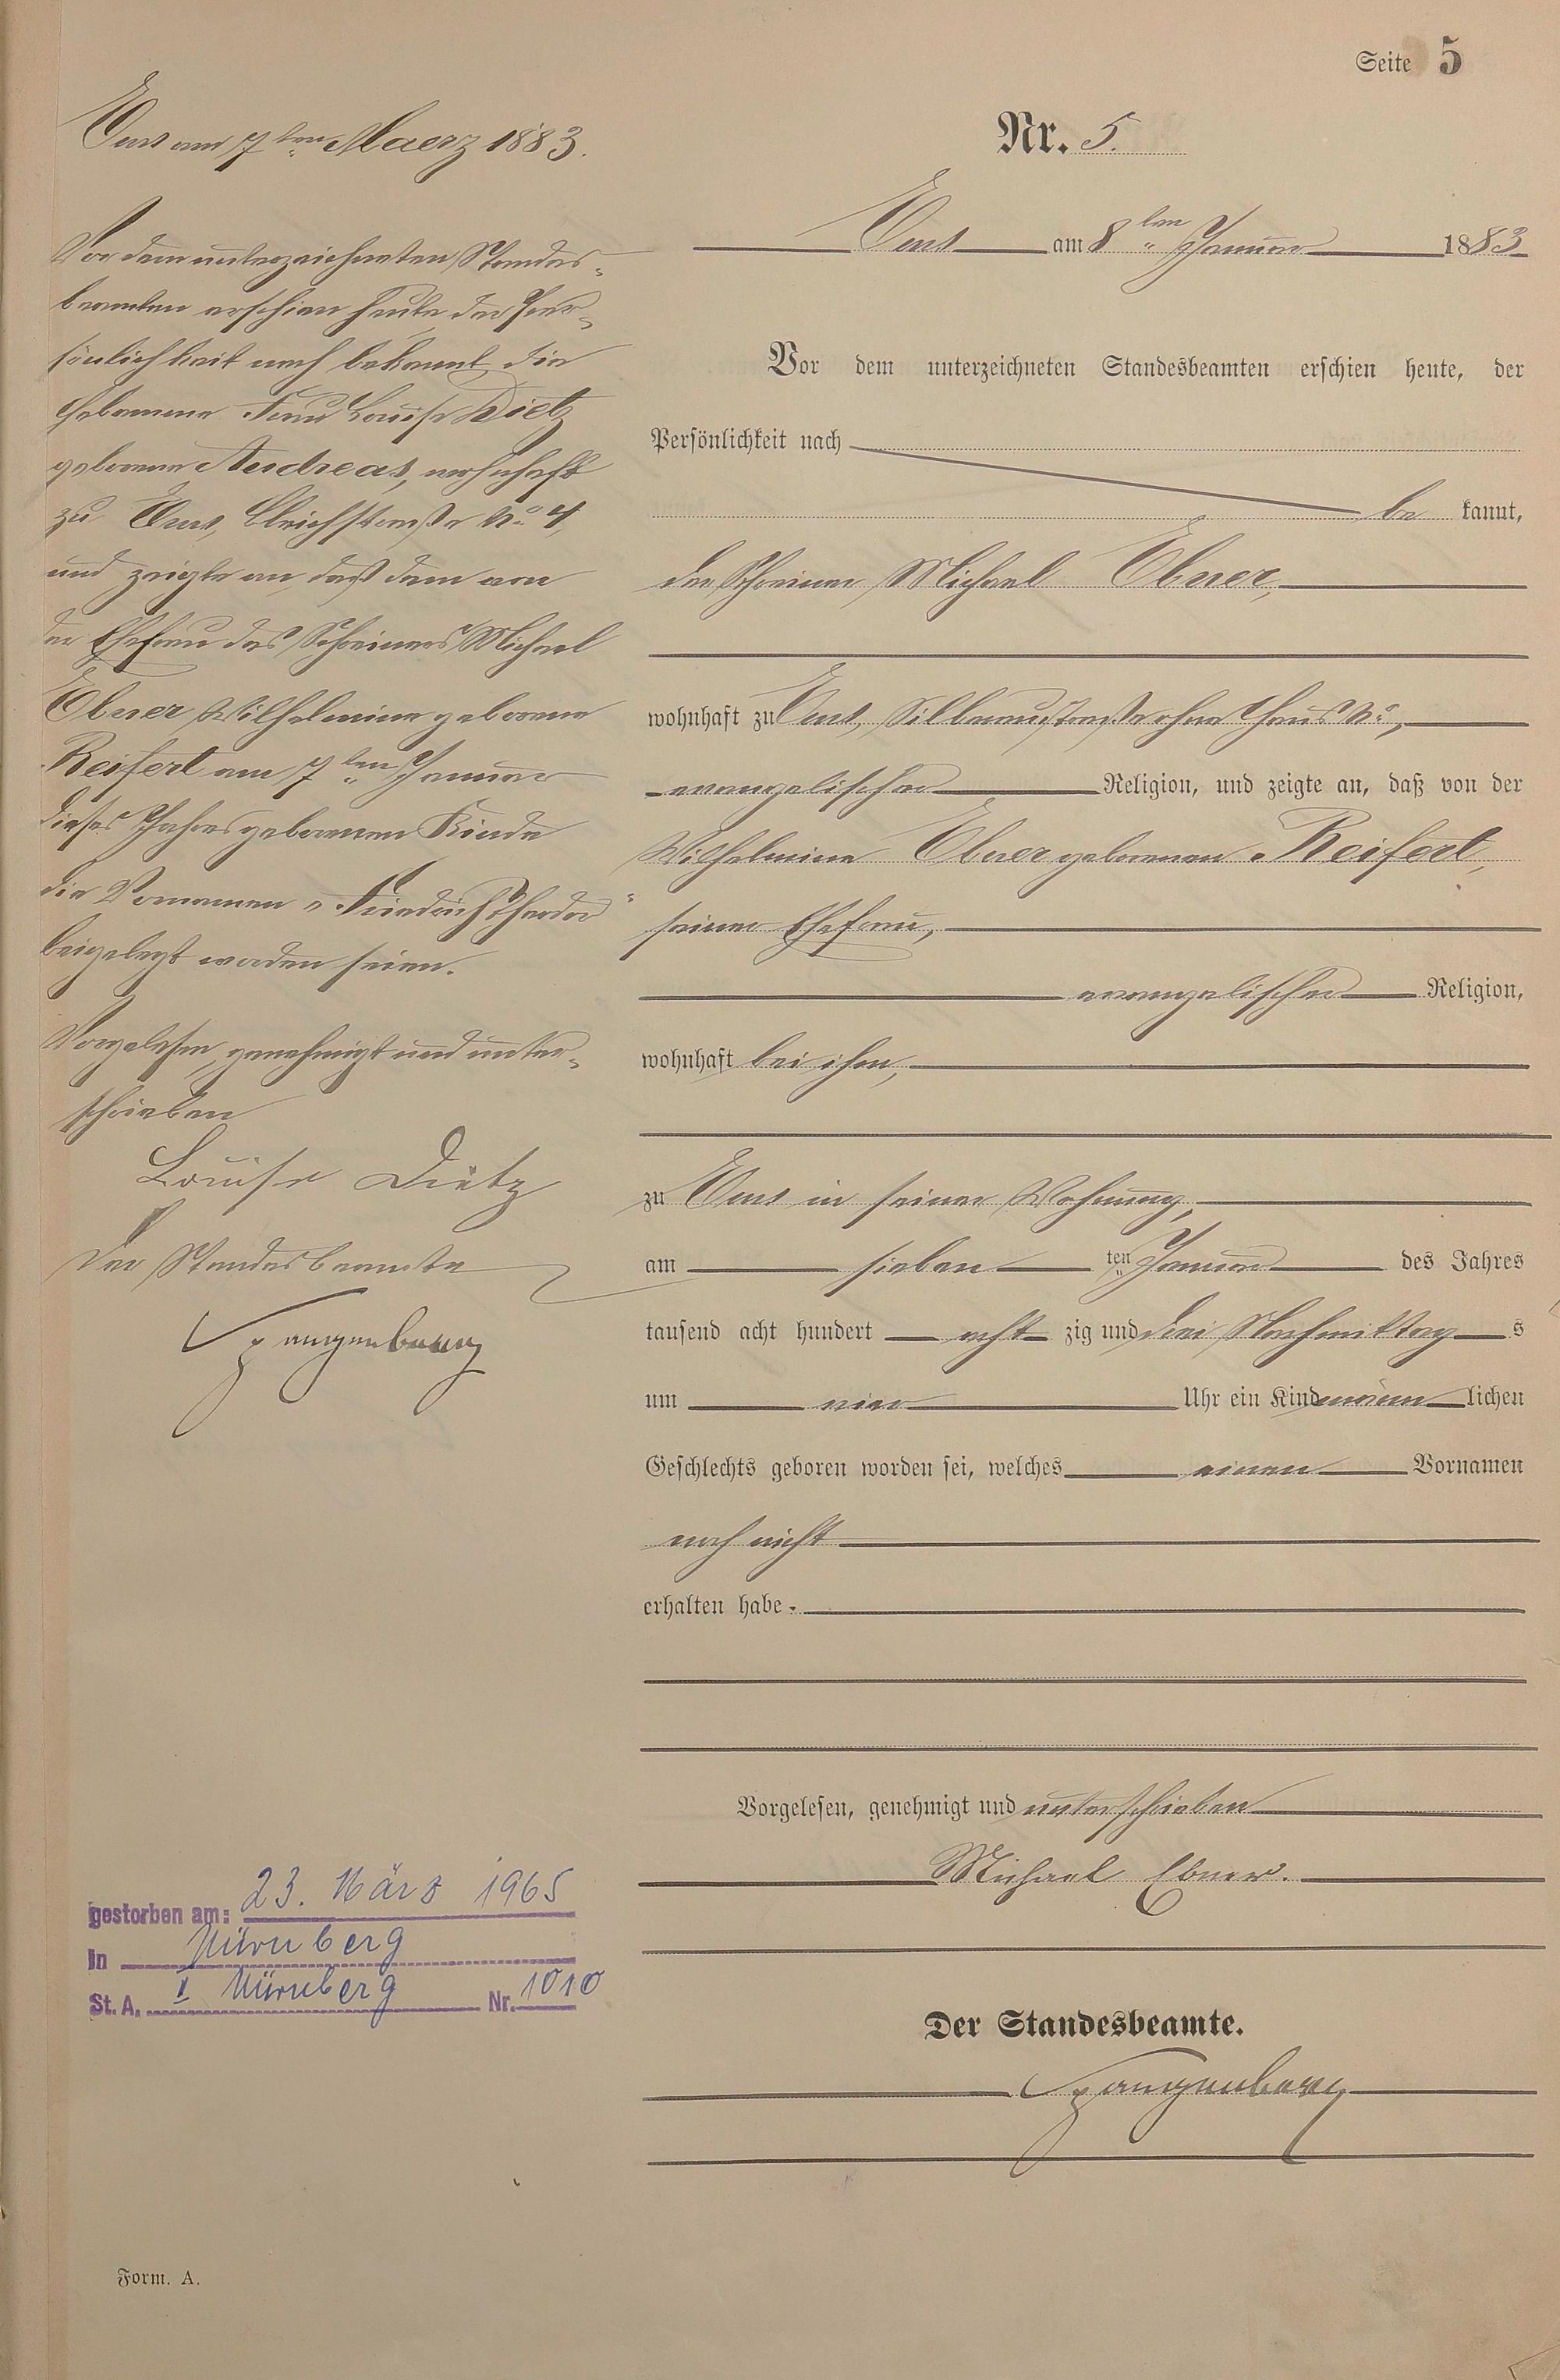 Seite 5
Nr. 5.
Ems am 8ten Januar 1883
Vor dem unterzeichneten Standesbeamten erschien heute, der
Persönlichkeit nach
be kannt,
der Schreiner Michael Ebner,
wohnhaft zu Ems, Silberaustraße ohne Haus No,
evangelischer Religion, und zeigte an, daß von der
Wilhelmine Ebner geborenen Reifert,
seiner Ehefrau,
evangelischer Religion,
wohnhaft bei ihm,
zu Ems in seiner Wohnung,
am sieben ten Januar des Jahres
tausend acht hundert acht zig und drei Nachmittag s
um vier Uhr ein Kind männ lichen
Geschlechts geboren worden sei, welches einen Vornamen
noch nicht
erhalten habe.
Vorgelesen, genehmigt und unterschrieben
Michael Ebner.
Der Standesbeamte.
Spangenberg
Ems am 7ten Maerz 1883.
Vor dem unterzeichneten Standes-
beamten erschien heute der Per-
sönlichkeit nach bekannt, die
Hebamme Frau Louise Dietz
geborene Andreas, wohnhaft
zu Ems, Bleichstraße No 4,
und zeigte an, daß dem von
der Ehefrau des Schreiners Michael
Ebner Wilhelmine geborene
Reifert am 7ten Januar
dieses Jahres geborenen Kinde
die Vornamen „Friedrich Theodor“
beigelegt worden seien.
Vorgelesen, genehmigt und unter-
schrieben
Louise Dietz
Der Standesbeamte
Spangenberg
gestorben am: 23. März 1965
in Nürnberg
St. A. I Nürnberg Nr. 1010
Form. A.